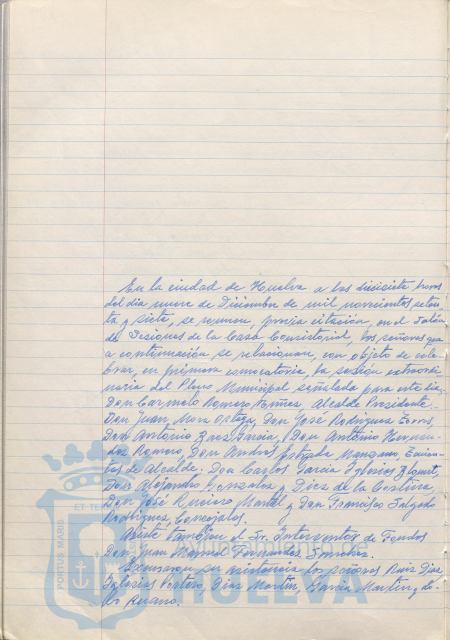 En la ciudad de Huelva a las diecisiete horas
del dia nueve de Diciembre de mil novecientos seten-
ta y siete, se reunen, previa citación, en el Salón
de Sesiones de la Casa Consistorial, los señores que
a continuación se relacionan, con objeto de cele-
brar, en primera convocatoria, la sesión extraordi-
naria del Pleno Municipal señalada para este dia.
Don Carmelo Romero Alcalde Presidente.
Don Juan Mora Ortega, Don José Rodríguez
Don Antonio García, Don Antonio Hernan-
dez Romero, Don Andrés Manzano, Tenien-
tes de Alcalde. Don Carlos García Iglesias
Don Alejandro Gonzalez y Diez de la Cortina,
Don José y Don Francisco Salgado
Rodríguez, Concejales.
Asiste también el Sr. Interventor de Fondos
Don Juan Manuel Fernandez Sanchez.
Excusaron su asistencia los señores Ruiz Diaz,
Iglesias Portero, Diaz Martín, García Martín y
PORTUS MARIS
ET TE
HUELVA